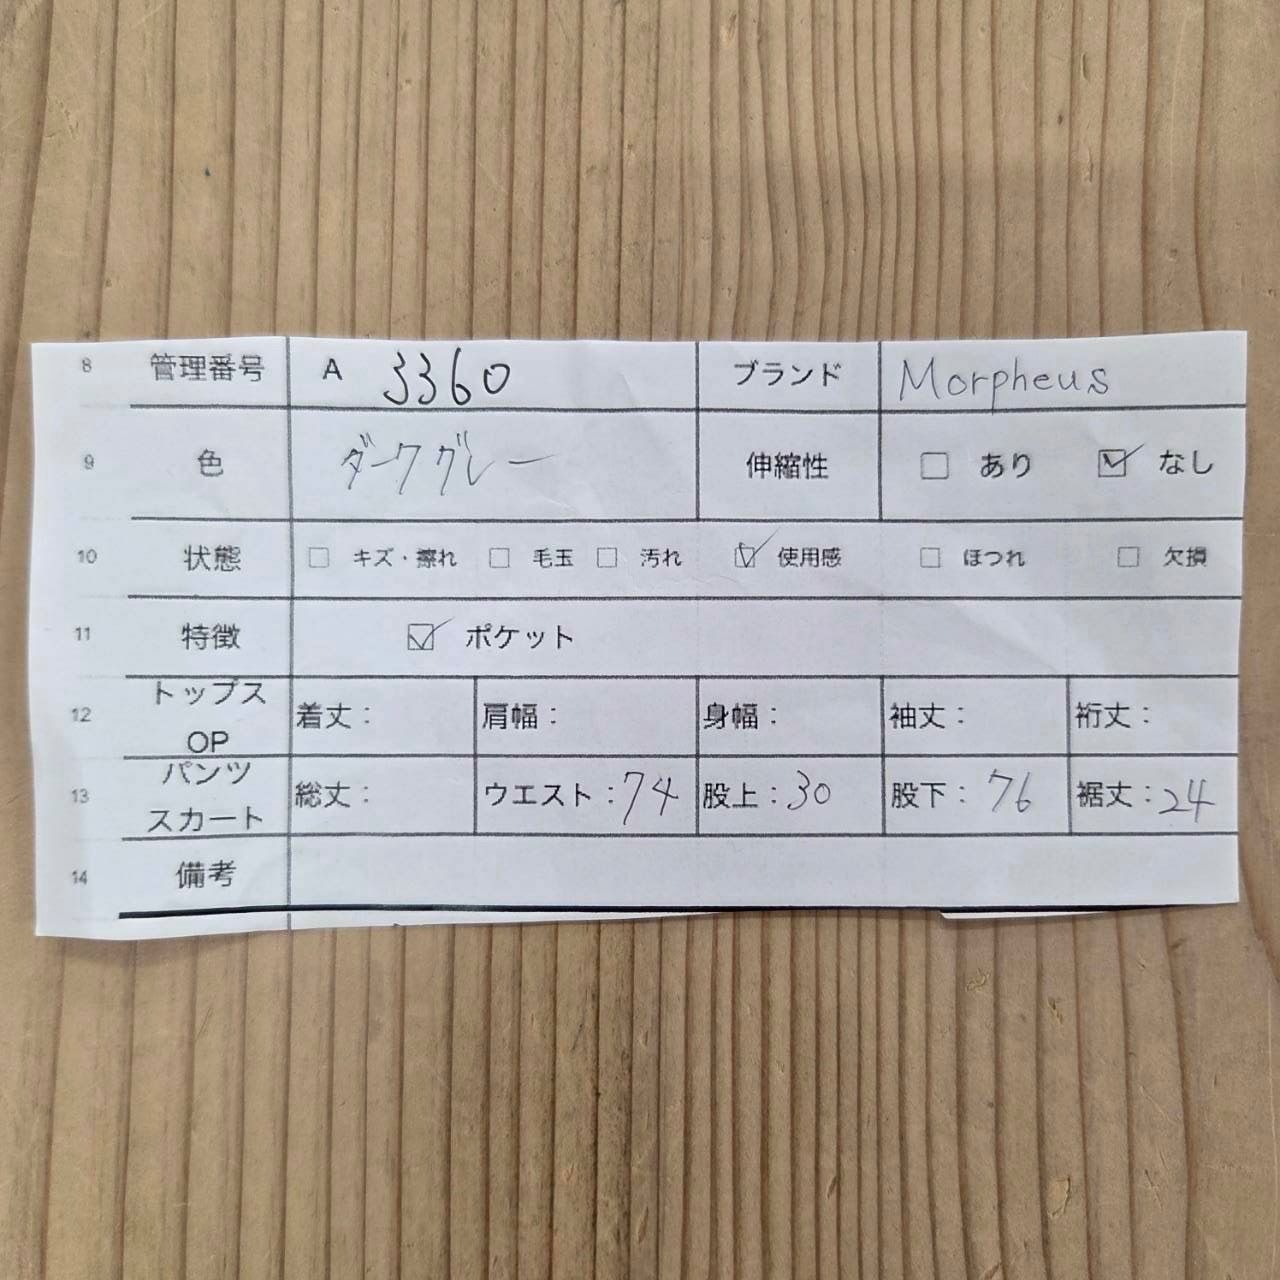 8 管理番号 A 3360 ブランド Morpheus
9 色 ダークグレー 伸縮性 □ あり ☑ なし
10 状態 □ キズ・擦れ □ 毛玉 □ 汚れ ☑ 使用感 □ ほつれ □ 欠損
11 特徴 ☑ ポケット
12 トップス OP 着丈： 肩幅： 身幅： 袖丈： 裄丈：
13 パンツ スカート 総丈： ウエスト：74 股上：30 股下：76 裾丈：24
14 備考